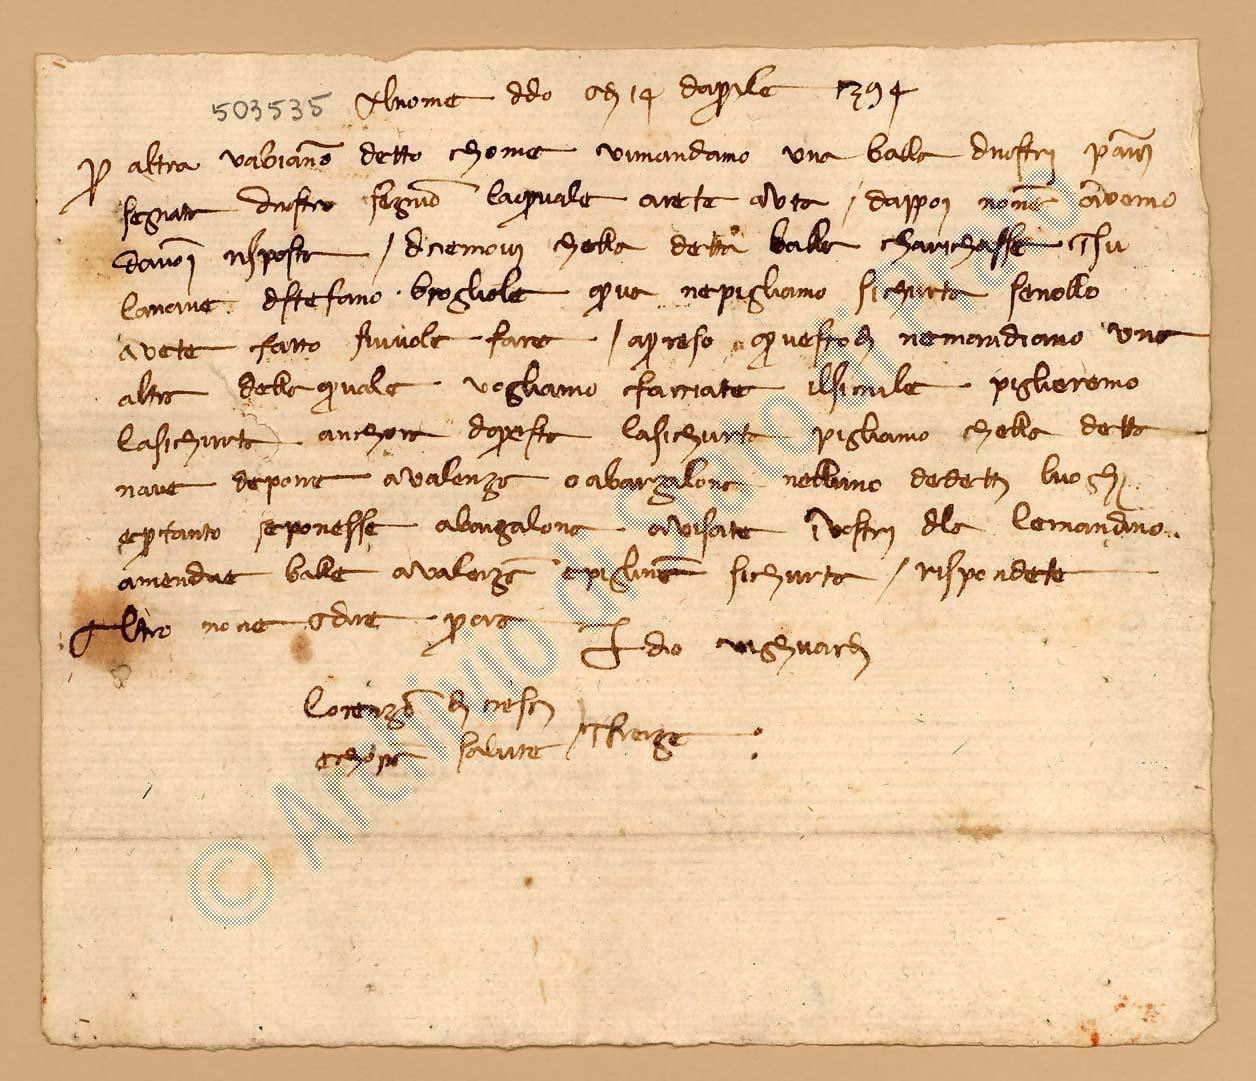 503535 Al nome ddo adi 14 daprile 1394
p altra vabiano detto chome vimandamo una balla dnostri panni
segnata dnostro segno laquale arete auta / dappoi none avemo
davoi risposta / dciemovi chella detta balla charichasse in su
lanave dstefano brogliole qua nepigliamo sichurta senollo
avete fatto sivuole fare / apreso a questo di nemandiamo una
altra della quale vogliamo facciate ilsimile piglieremo
lasichurta anchora daquesta lasichurta pigliamo chella detta
nave deporre avalenza o abarzalona nelluno dedetti luoghi
eptanto seponesse abarzalona avisate i vostri dla lemandino
amendue balle avalenza epiglino sichurta / rispondete
Altro none a dire p ora Idio vighuardi
Lorenzo di cresci
echonpa salute in firenze
© Archivio di Stato di Prato